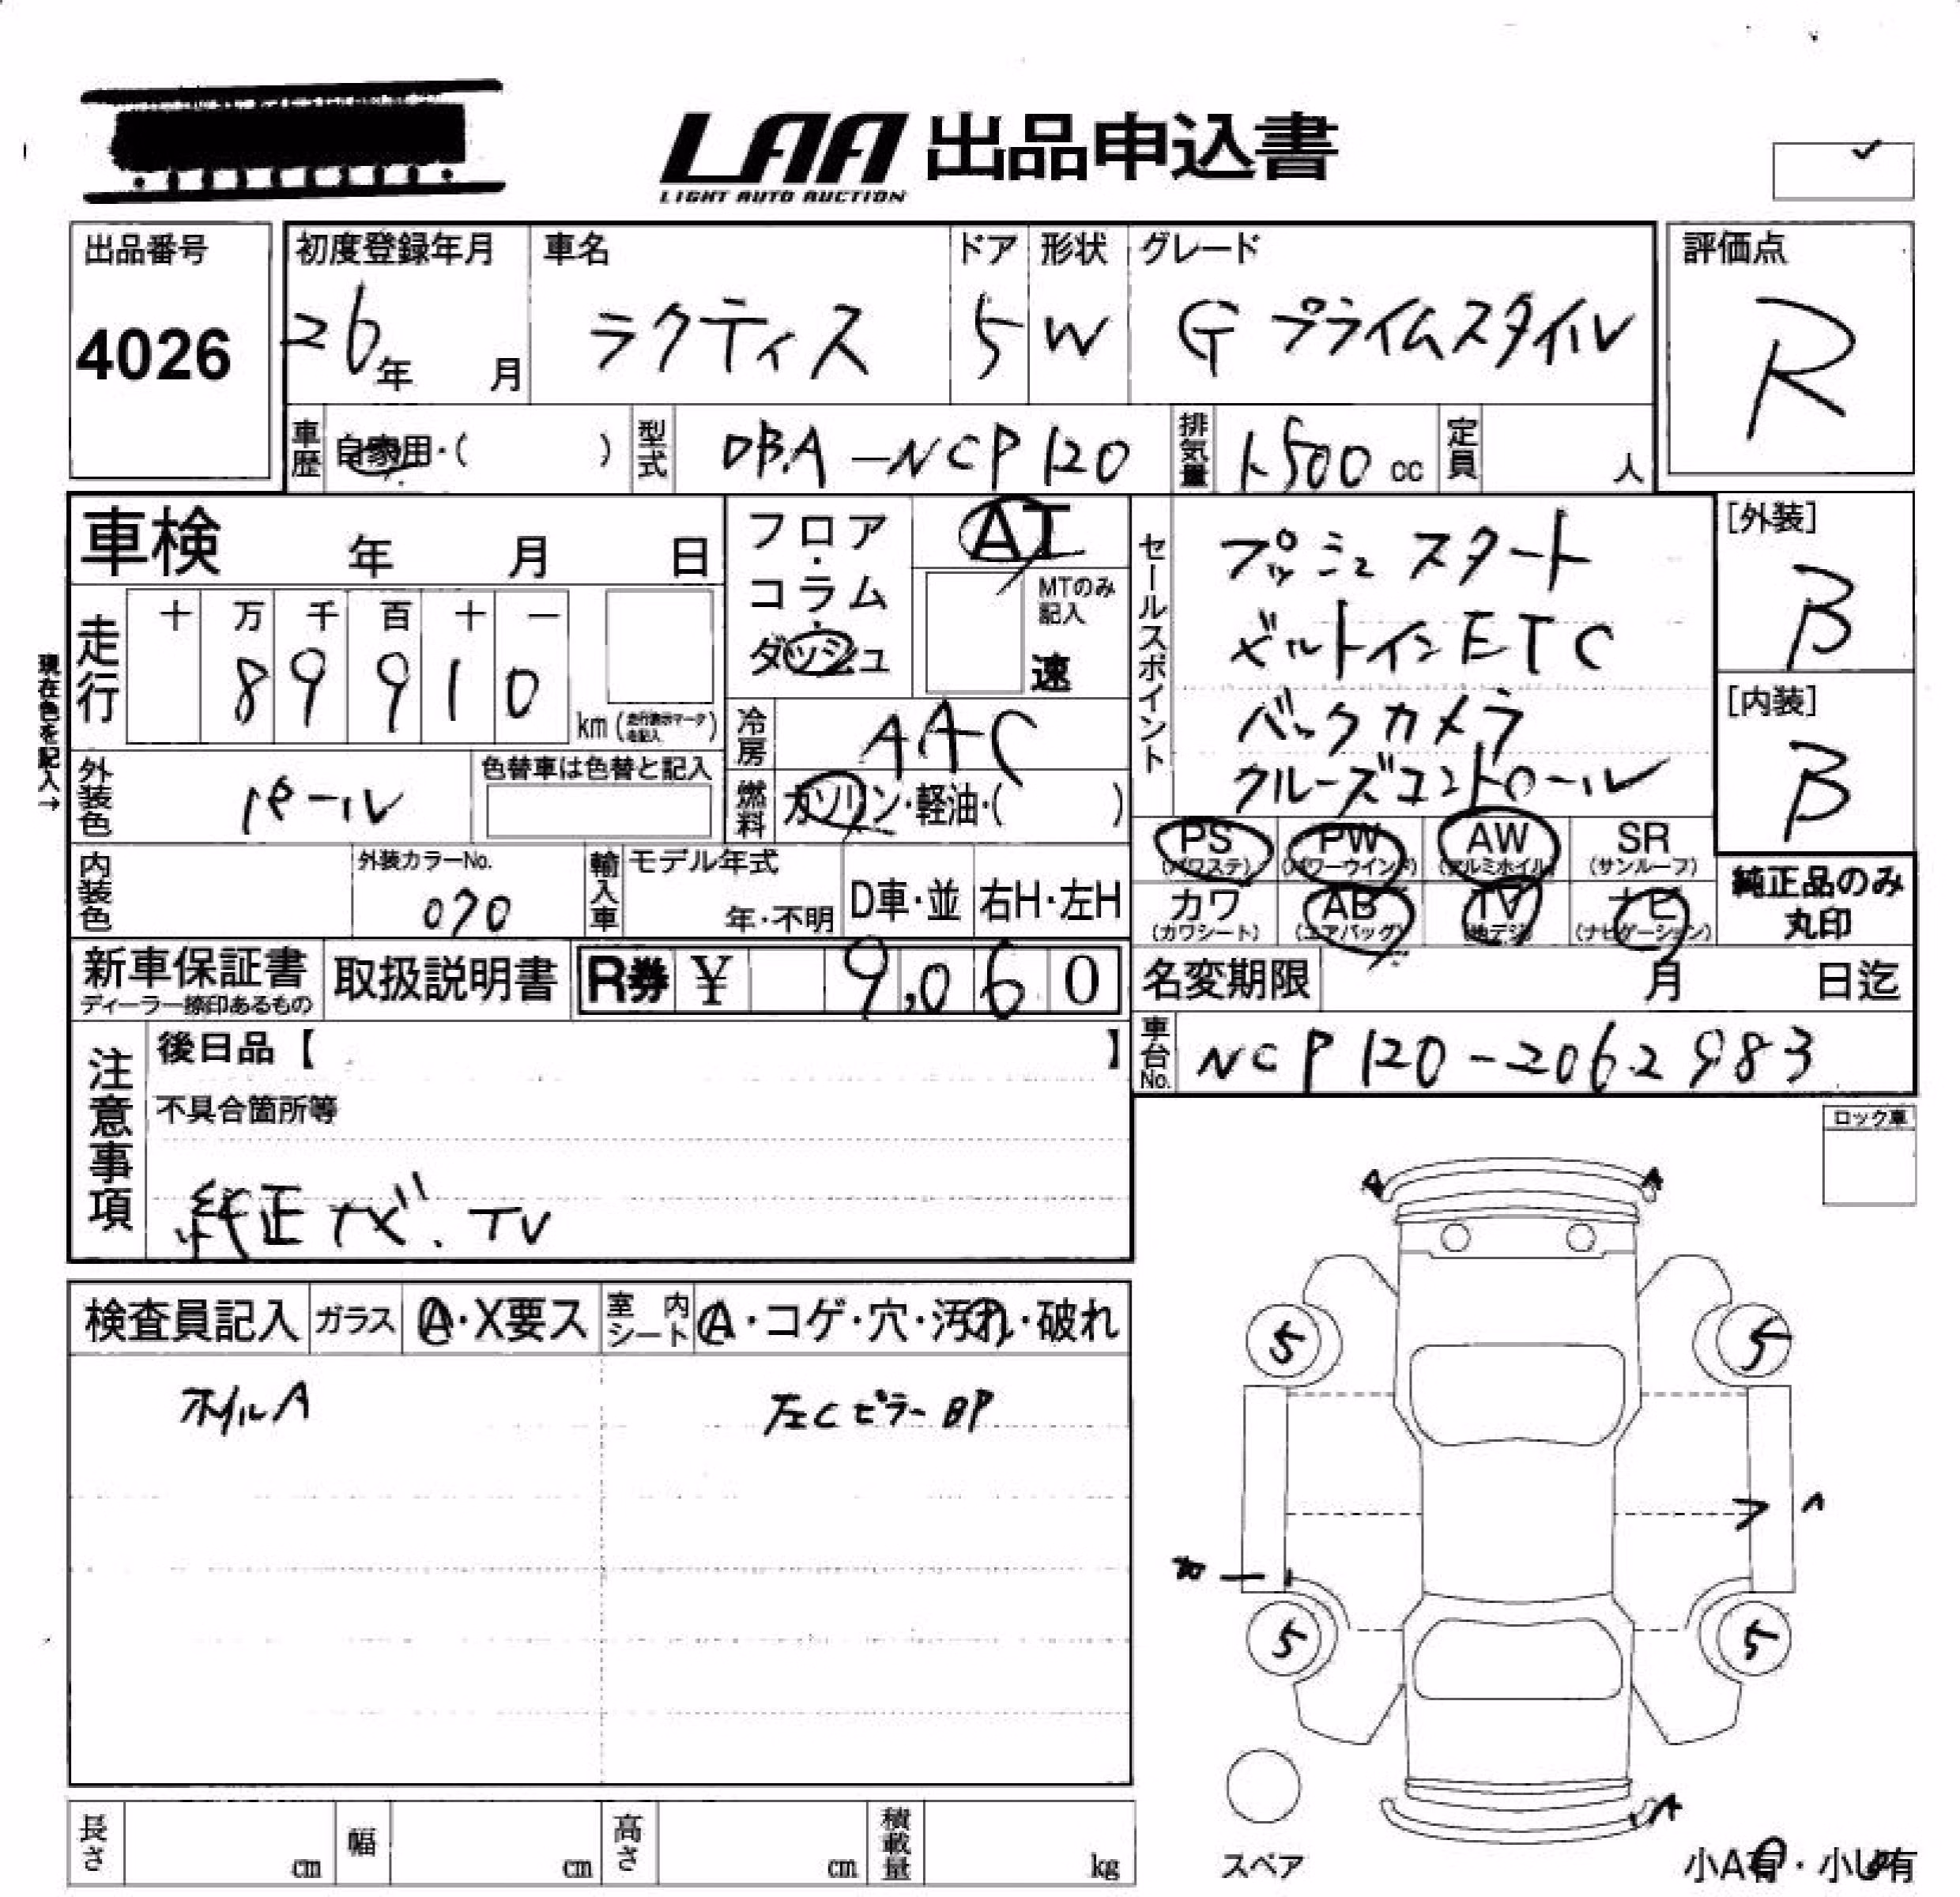 LAA 出品申込書
LIGHT AUTO AUCTION
出品番号
4026
初度登録年月
26年 月
車名
ラクティス
ドア
5
形状
W
グレード
G プライムスタイル
評価点
R
車歴 自家用・( )
型式 DBA-NCP120
排気量 1500 cc
定員 人
車検 年 月 日
フロア・コラム・ダッシュ
AT
MTのみ記入
速
セールスポイント
プッシュスタート
ビルトインETC
バックカメラ
クルーズコントロール
[外装]
B
[内装]
B
現在色を記入→
走行
十 万 千 百 十 一
8 9 9 1 0
km (走行表示マークを記入)
冷房 AAC
燃料 ガソリン・軽油・( )
外装色 パール
色替車は色替と記入
内装色
外装カラーNo.
070
輸入車
モデル年式
年・不明
D車・並
右H・左H
PS (パワステ)
PW (パワーウインド)
AW (アルミホイル)
SR (サンルーフ)
カワ (カワシート)
AB (エアバッグ)
TV (地デジ)
ナビ (ナビゲーション)
純正品のみ丸印
新車保証書
ディーラー捺印あるもの
取扱説明書
R券 ¥ 9,060
名変期限 月 日迄
車台No. NCP120-2062983
注意事項
後日品【 】
不具合箇所等
純正ナビ.TV
ロック車
検査員記入
ガラス A・X要ス
室内シート A・コゲ・穴・汚れ・破れ
ホイルA
左CピラーBP
A
A
5
5
5
5
A
スペア
小A有・小U有
長さ cm
幅 cm
高さ cm
積載量 kg